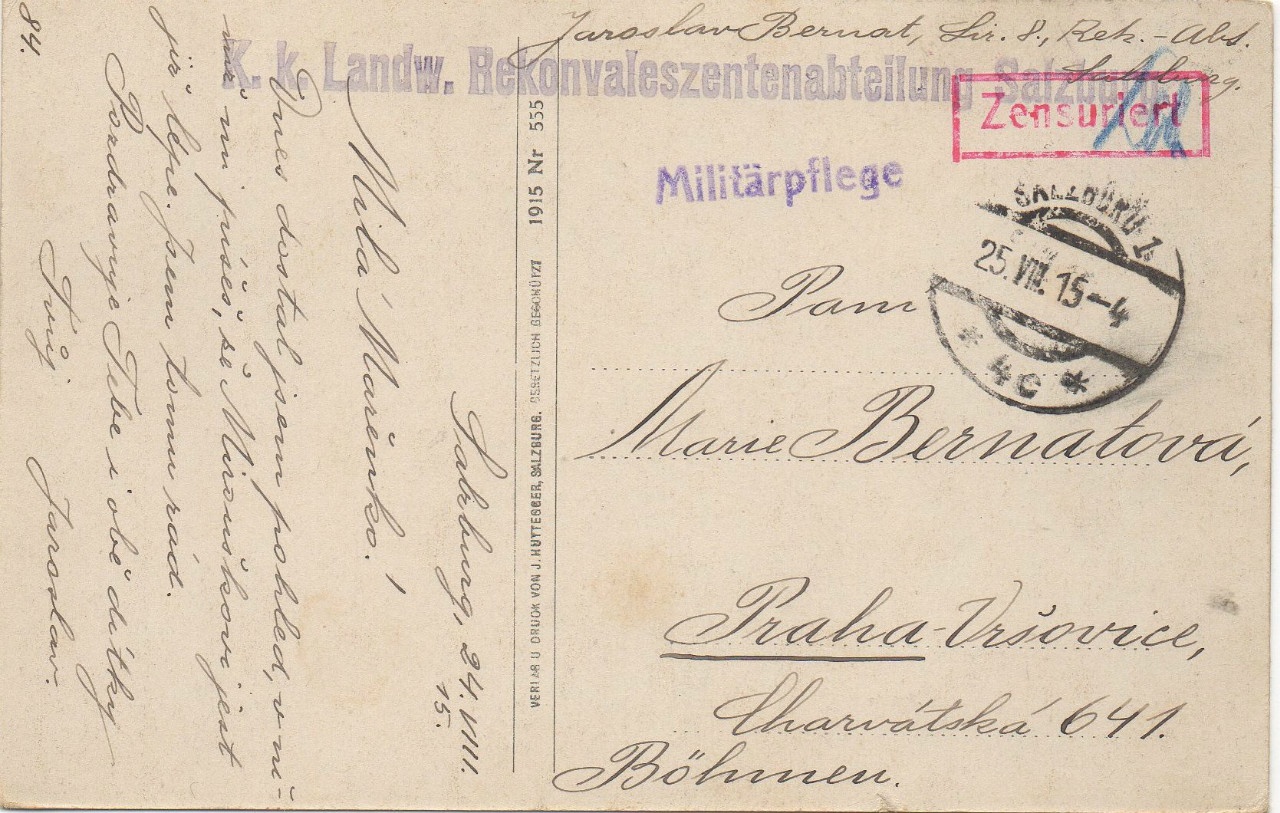 Jaroslav Bernat, Lir. 8., Rek.-Abt.
Salzburg.
K. k. Landw. Rekonvaleszentenabteilung Salzburg
Zensuriert
Militärpflege
SALZBURG 1
25.VIII.15-4
* 4c *
Paní
Marie Bernatová,
Praha-Vršovice,
Charvátská 641.
Böhmen.
VERLAG U DRUCK VON J. HUTTEGGER, SALZBURG. GESETZLICH GESCHÜTZT 1915 Nr 555
Salzburg, 24.VIII.
15.
Milá Mařenko!
Dnes dostal jsem pohled, v ní-
mž mi píšeš, že Mirouškovi jest
již lépe. Jsem tomu rád.
Pozdravuje Tebe i obě dítky
Tvůj Jaroslav.
84.